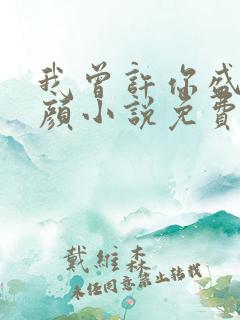 我曾許你盛
顏小說免費
戴維森
未經同意禁止轉載